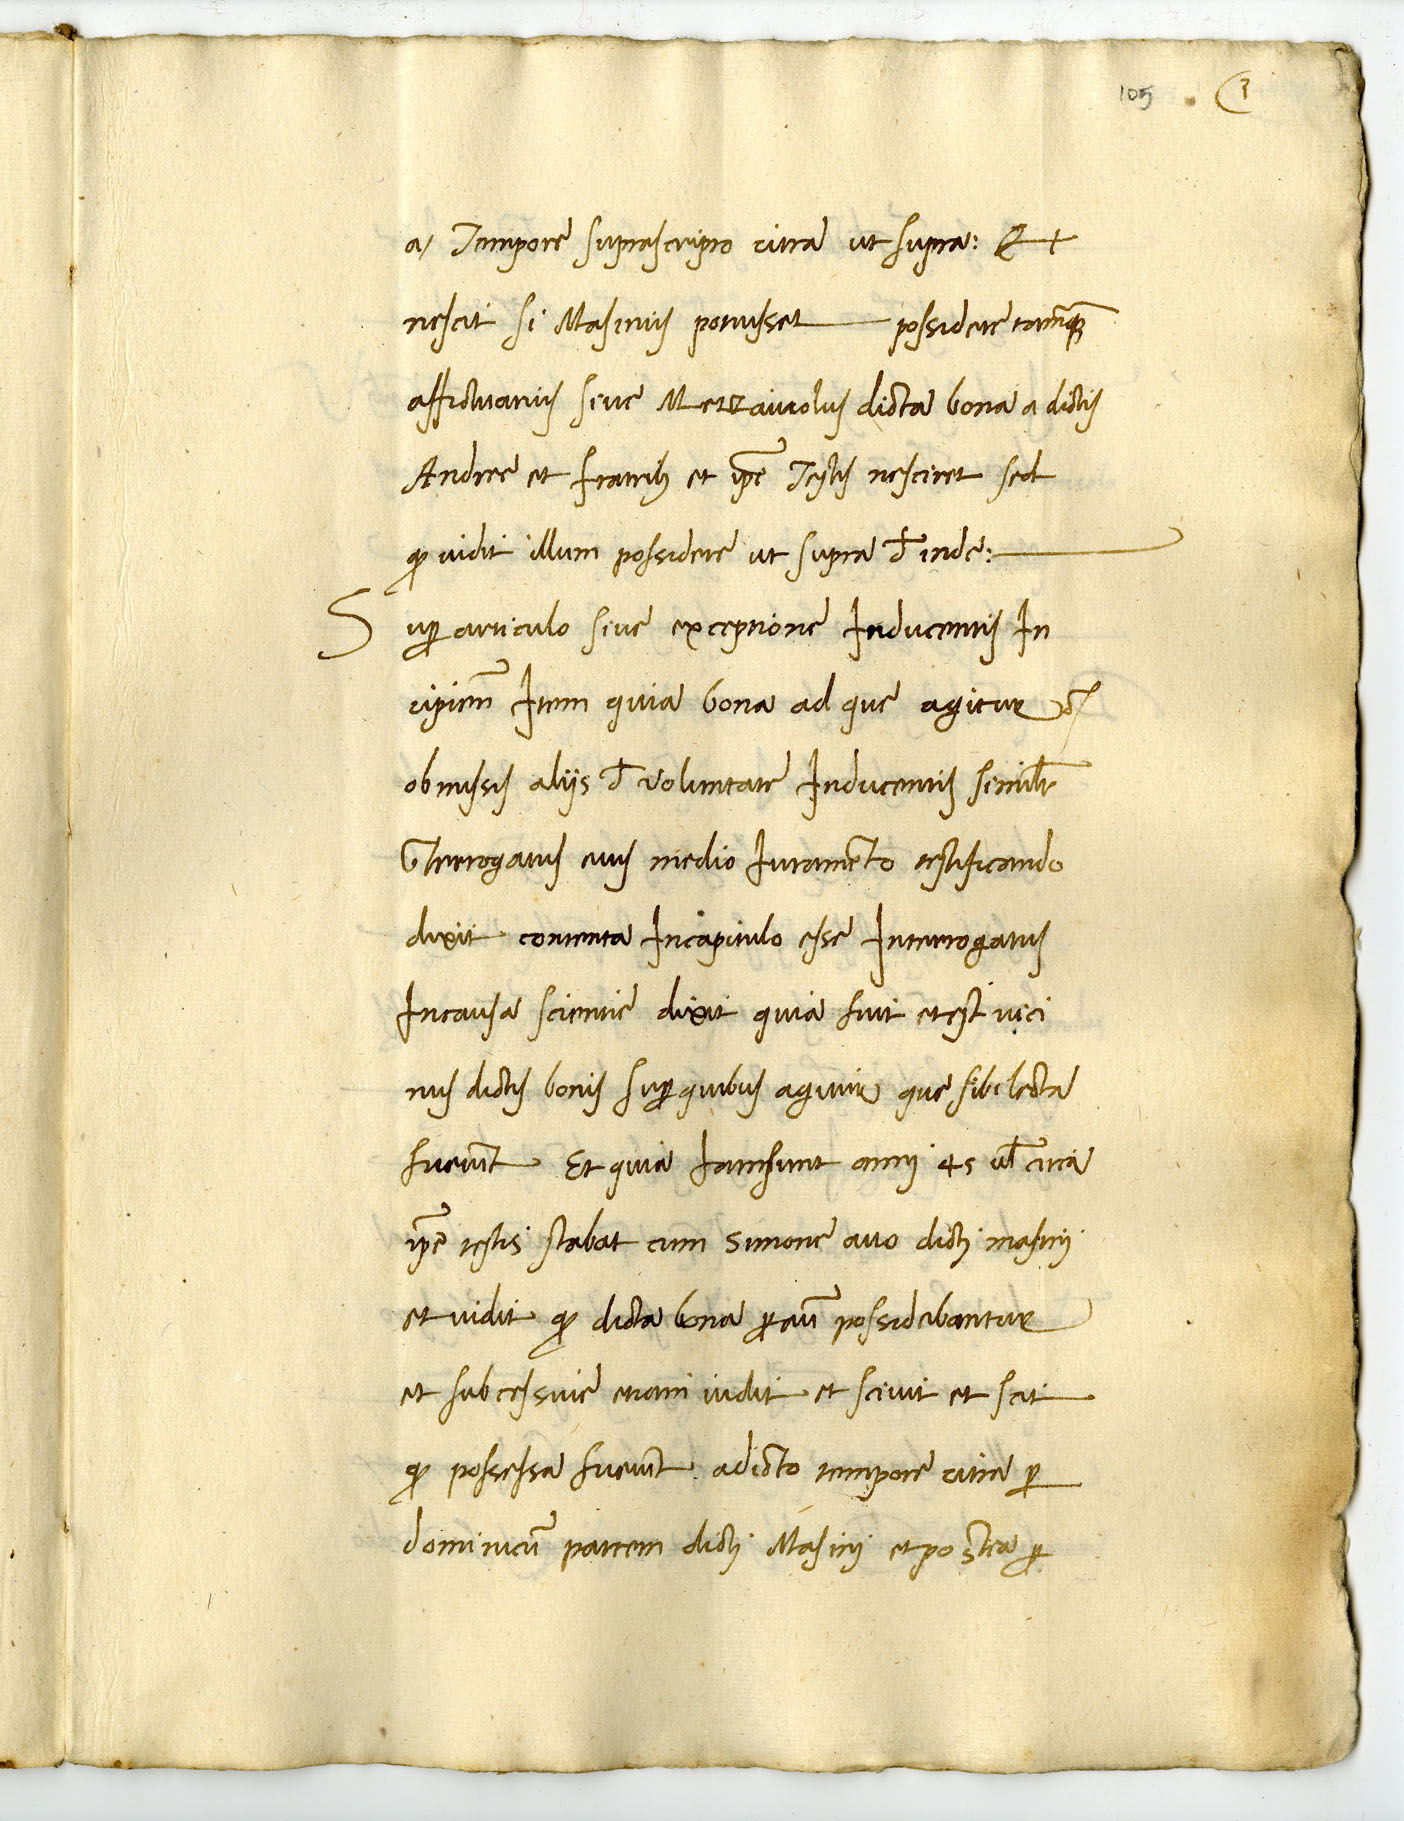 105 3
a/ Tempore suprascripto citra ut supra: Et
nescit si Masinus potuisset possidere tamq̃ȝ
affictuarius sive Mezzaiuolus dicta bona a dictis
Andree et fratribȝ et ip̃e Testis nesciret sed
qȝ vidit illum possidere ut supra d̃ inde:
Sup̱ articulo sive exceptione Inducentis In
cipien̄ Item quia bona ad que agitur
obmissis aliis d̃ voluntate Inducentis simil̃r
Interrogatus eius medio Iuramẽto testificando
dixit contenta In capitulo esse Interrogatus
In causa scientie dixit quia fuit et est vici
nus dictis bonis sup̱ quibus agitur que sibi lecta
fuerũt Et quia Iam sunt anni 45 vl̃ circa
ip̃e testis stabat cum Simone avo dicti masini
et vidit qȝ dicta bona p̱ eũ possidebantur
et subcessive etiam vidit et scivit et scit
qȝ possessa fuerũt a dicto tempore citra p̱
dominicũ patrem dicti Masini et postea p̱